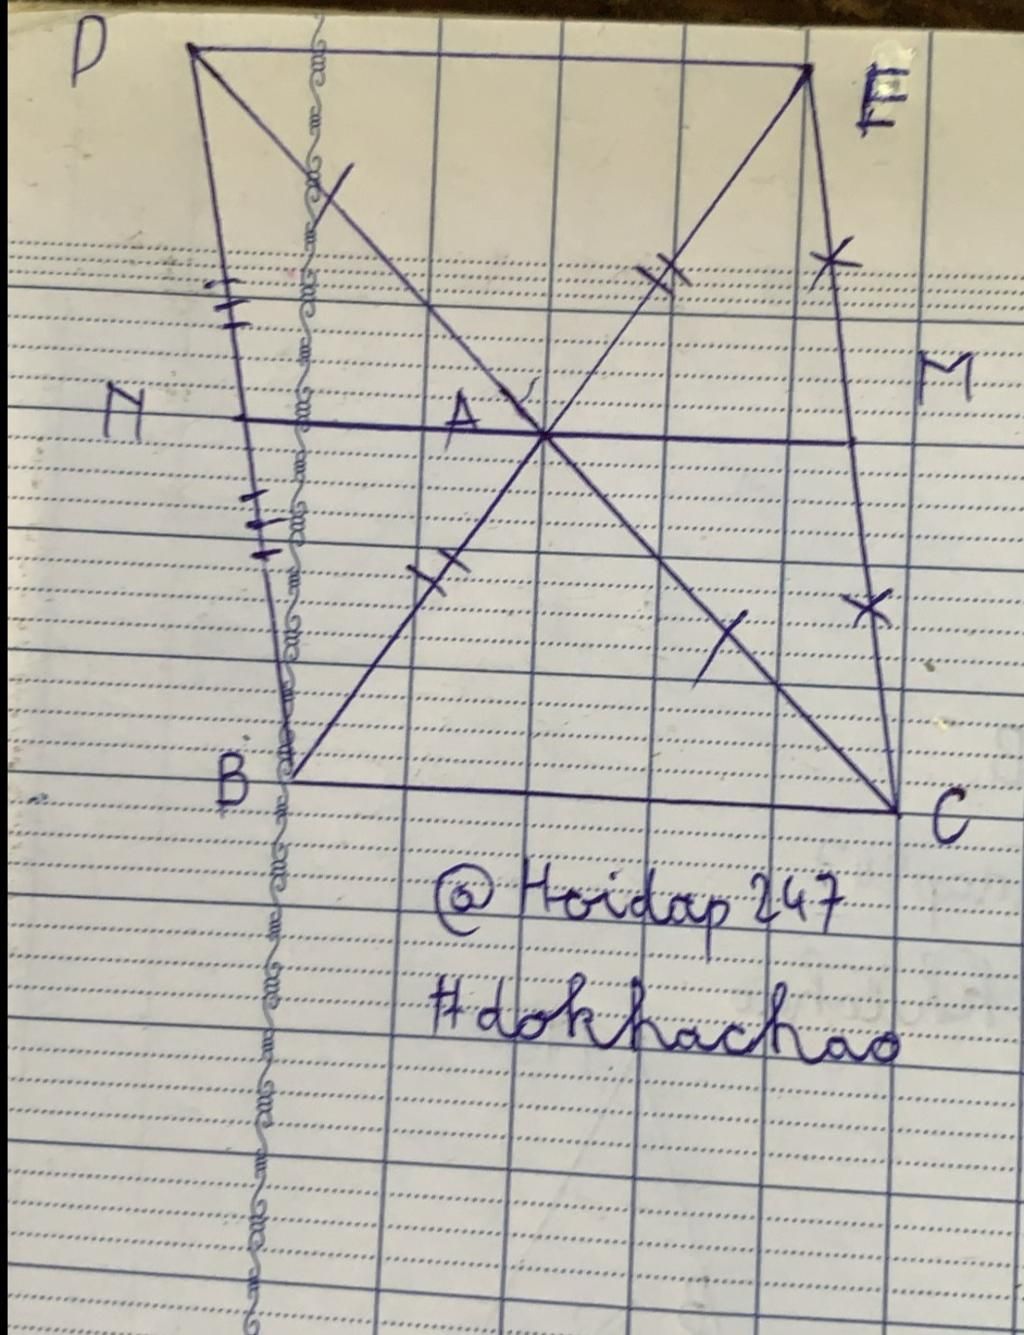 D
E
N
A
M
B
C
@Hoidap247
#dokhachao